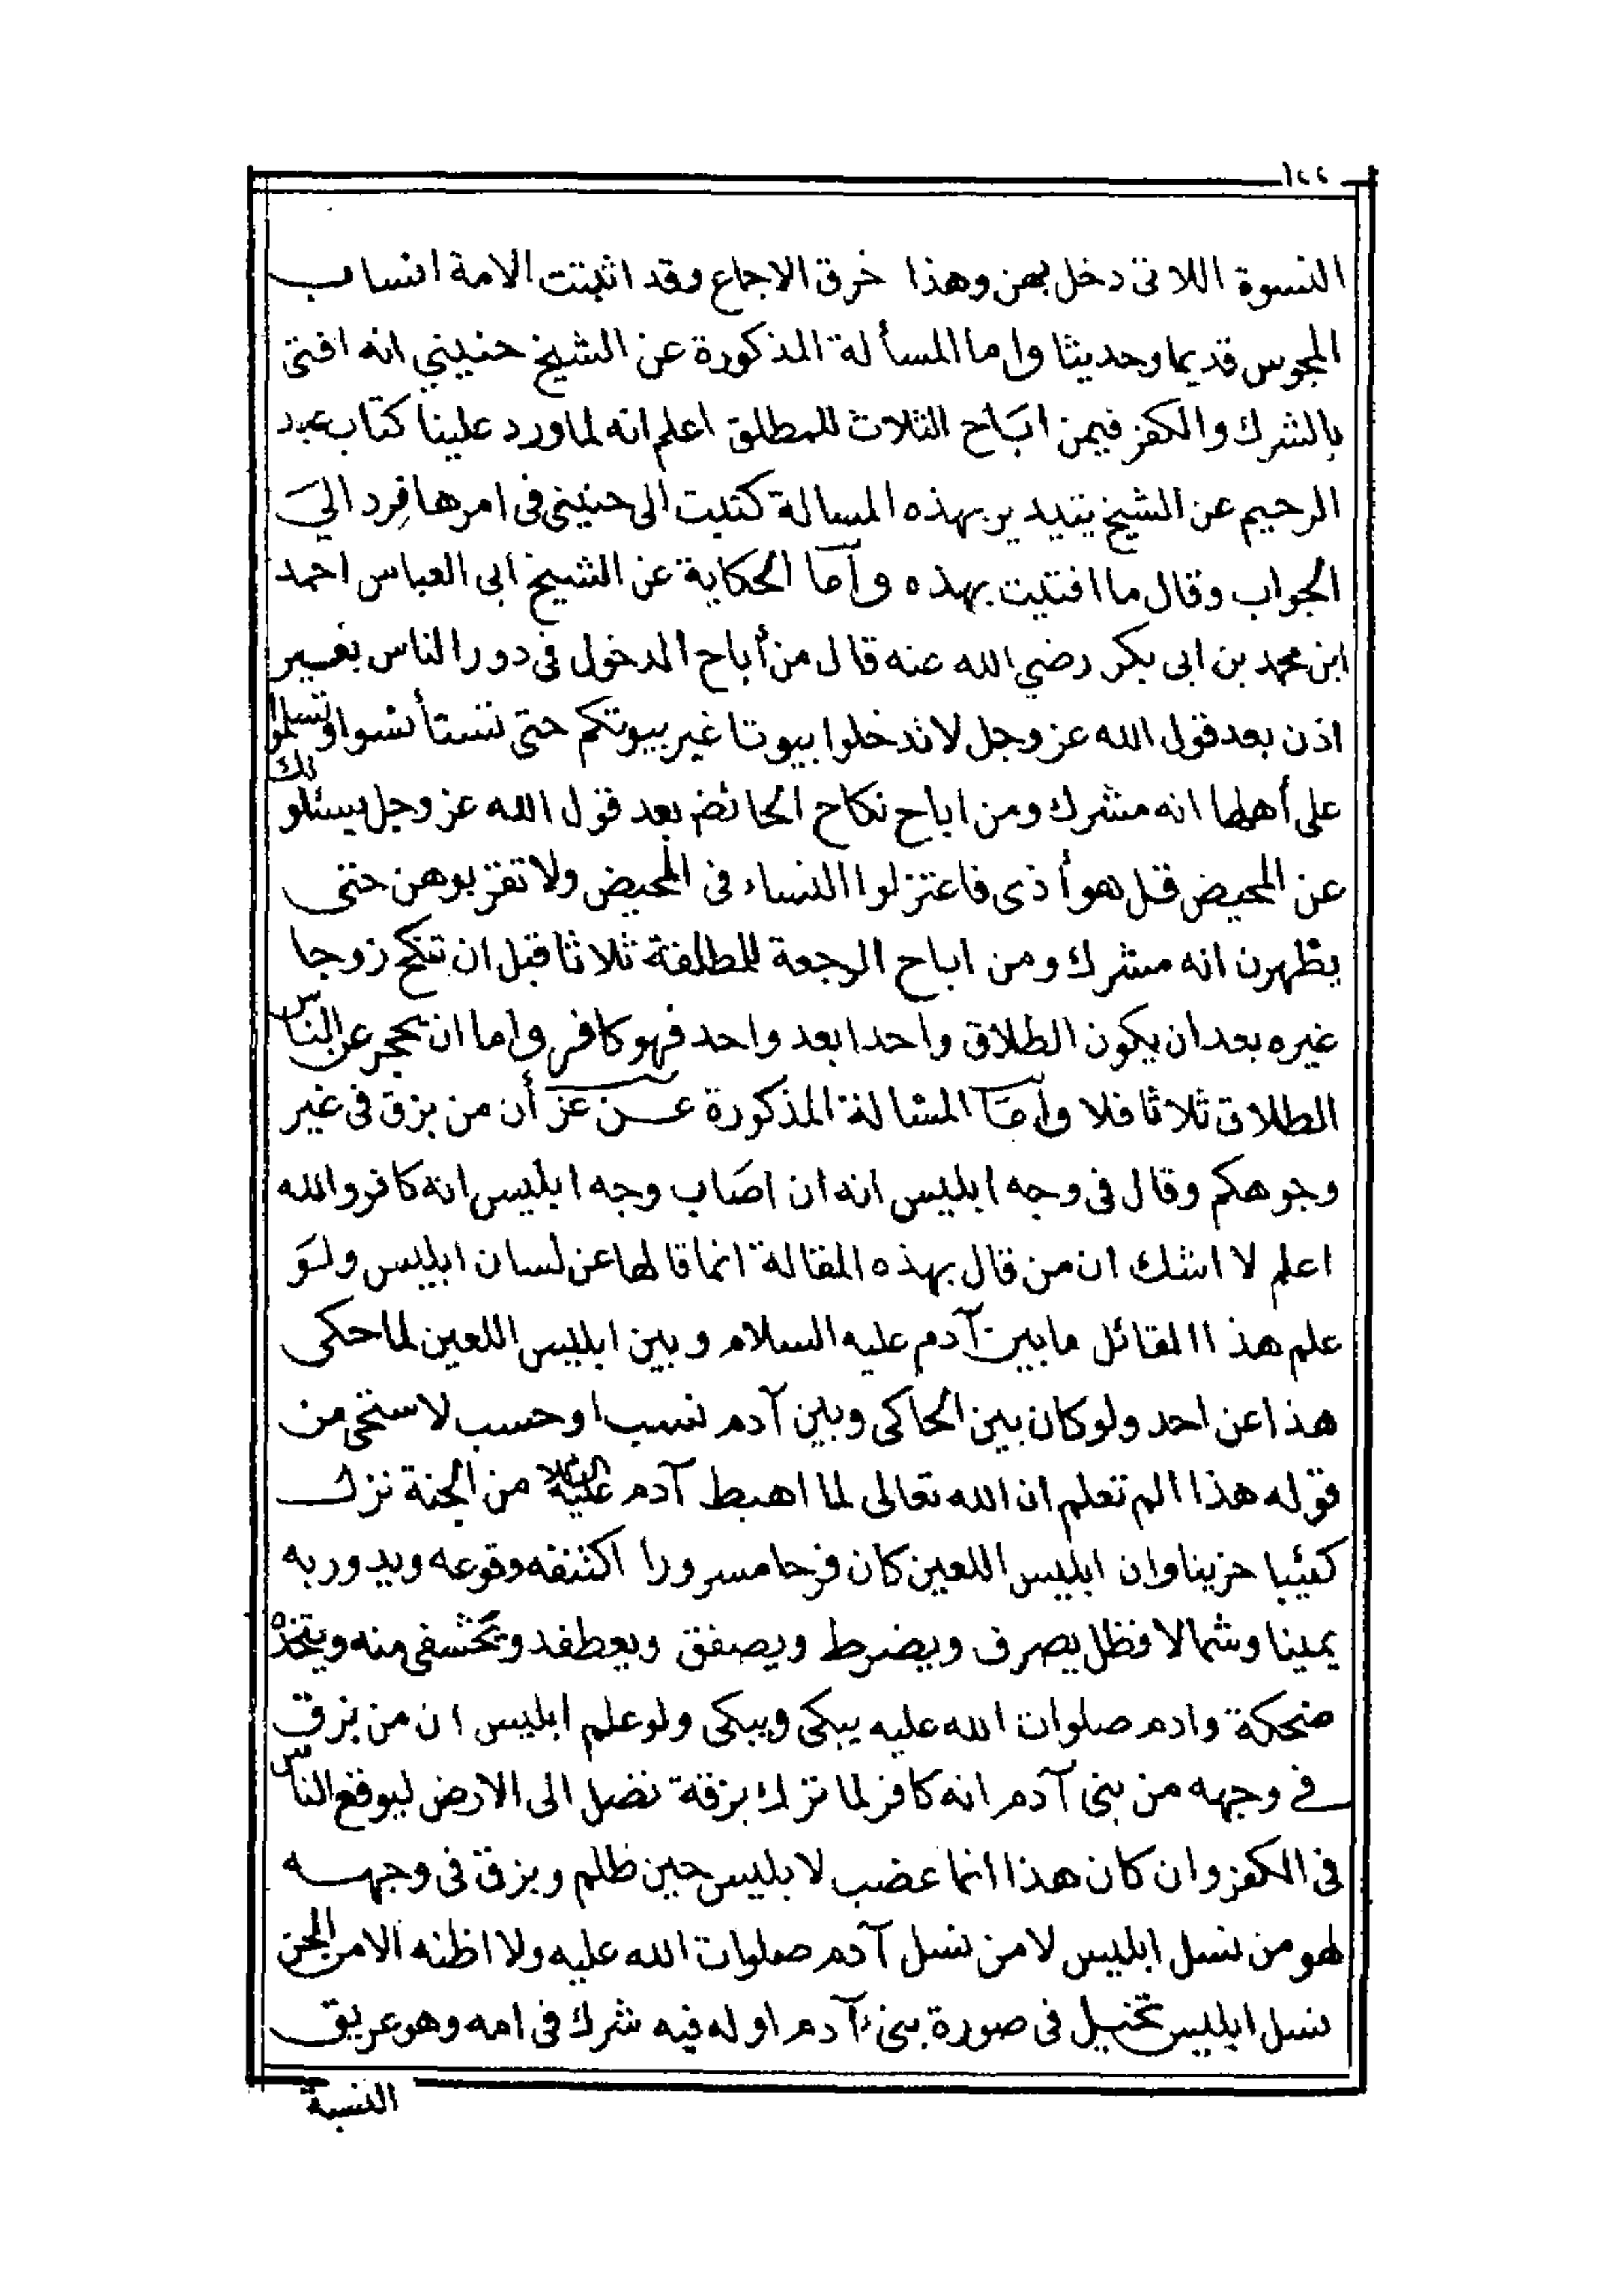 ١٢٢
النسوة اللاتى دخل بهن وهذا خرق الاجماع وقد اثبتت الامة انساب
المجوس قديما وحديثا واما المسألة المذكورة عن الشيخ حنيني انه افتى
بالشرك والكفر فيمن ابَاح الثلاث للمطلق اعلم انه لما ورد علينا كتاب عبد
الرحيم عن الشيخ يتيدير بهذه المسالة كتبت الى حنينى فى امرها فرد اليَ
الجواب وقال ما افتيت بهذه وأما الحكاية عن الشيخ ابى العباس احمد
ابن محمد بن ابى بكر رضي الله عنه قال من أباح الدخول فى دور الناس بغير
اذن بعد قول الله عز وجل لا تدخلوا بيوتا غير بيوتكم حتى تستأنسوا وتسلموا
على أهلها انه مشرك ومن اباح نكاح الحائض بعد قول الله عز وجل يسئلونك
عن المحيض قل هو أذى فاعتزلوا النساء فى المحيض ولا تقربوهن حتى
يطهرن انه مشرك ومن اباح الرجعة للمطلقة ثلاثا قبل ان تنكح زوجا
غيره بعد ان يكون الطلاق واحدا بعد واحد فهو كافر واما ان يحجر عن الناس
الطلاق ثلاثا فلا وأمَا المسالة المذكورة عن عز أن من بزق فى غير
وجوهكم وقال فى وجه ابليس انه ان اصَاب وجه ابليس انه كافر والله
اعلم لا اشك ان من قال بهذه المقالة انما قالها عن لسان ابليس ولوَ
علم هذا القائل ما بين آدم عليه السلام وبين ابليس اللعين لما حكى
هذا عن احد ولو كان بين الحاكى وبين آدم نسب او حسب لاستحى من
قوله هذا الم تعلم ان الله تعالى لما اهبط آدم عليه السلام من الجنة نزل
كئيبا حزينا وان ابليس اللعين كان فرحا مسرورا اكتنفه وقوعه ويدور به
يمينا وشمالا فظل يصرف ويضرط ويصفق ويتشفى منه ويتخذه
ضحكة وادم صلوات الله عليه يبكى ويبكى ولو علم ابليس ان من بزق
في وجهه من بنى آدم انه كافر لما ترك بزقة تضل الى الارض ليوقع الناس
فى الكفر وان كان هذا انما غضب لابليس حين ظلم وبزق فى وجهه
لهو من نسل ابليس لا من نسل آدم صلوات الله عليه ولا اظنه الا من الجن
نسل ابليس تخيل فى صورة بنى آدم او له فيه شرك فى امه وهو عريق
النسبة